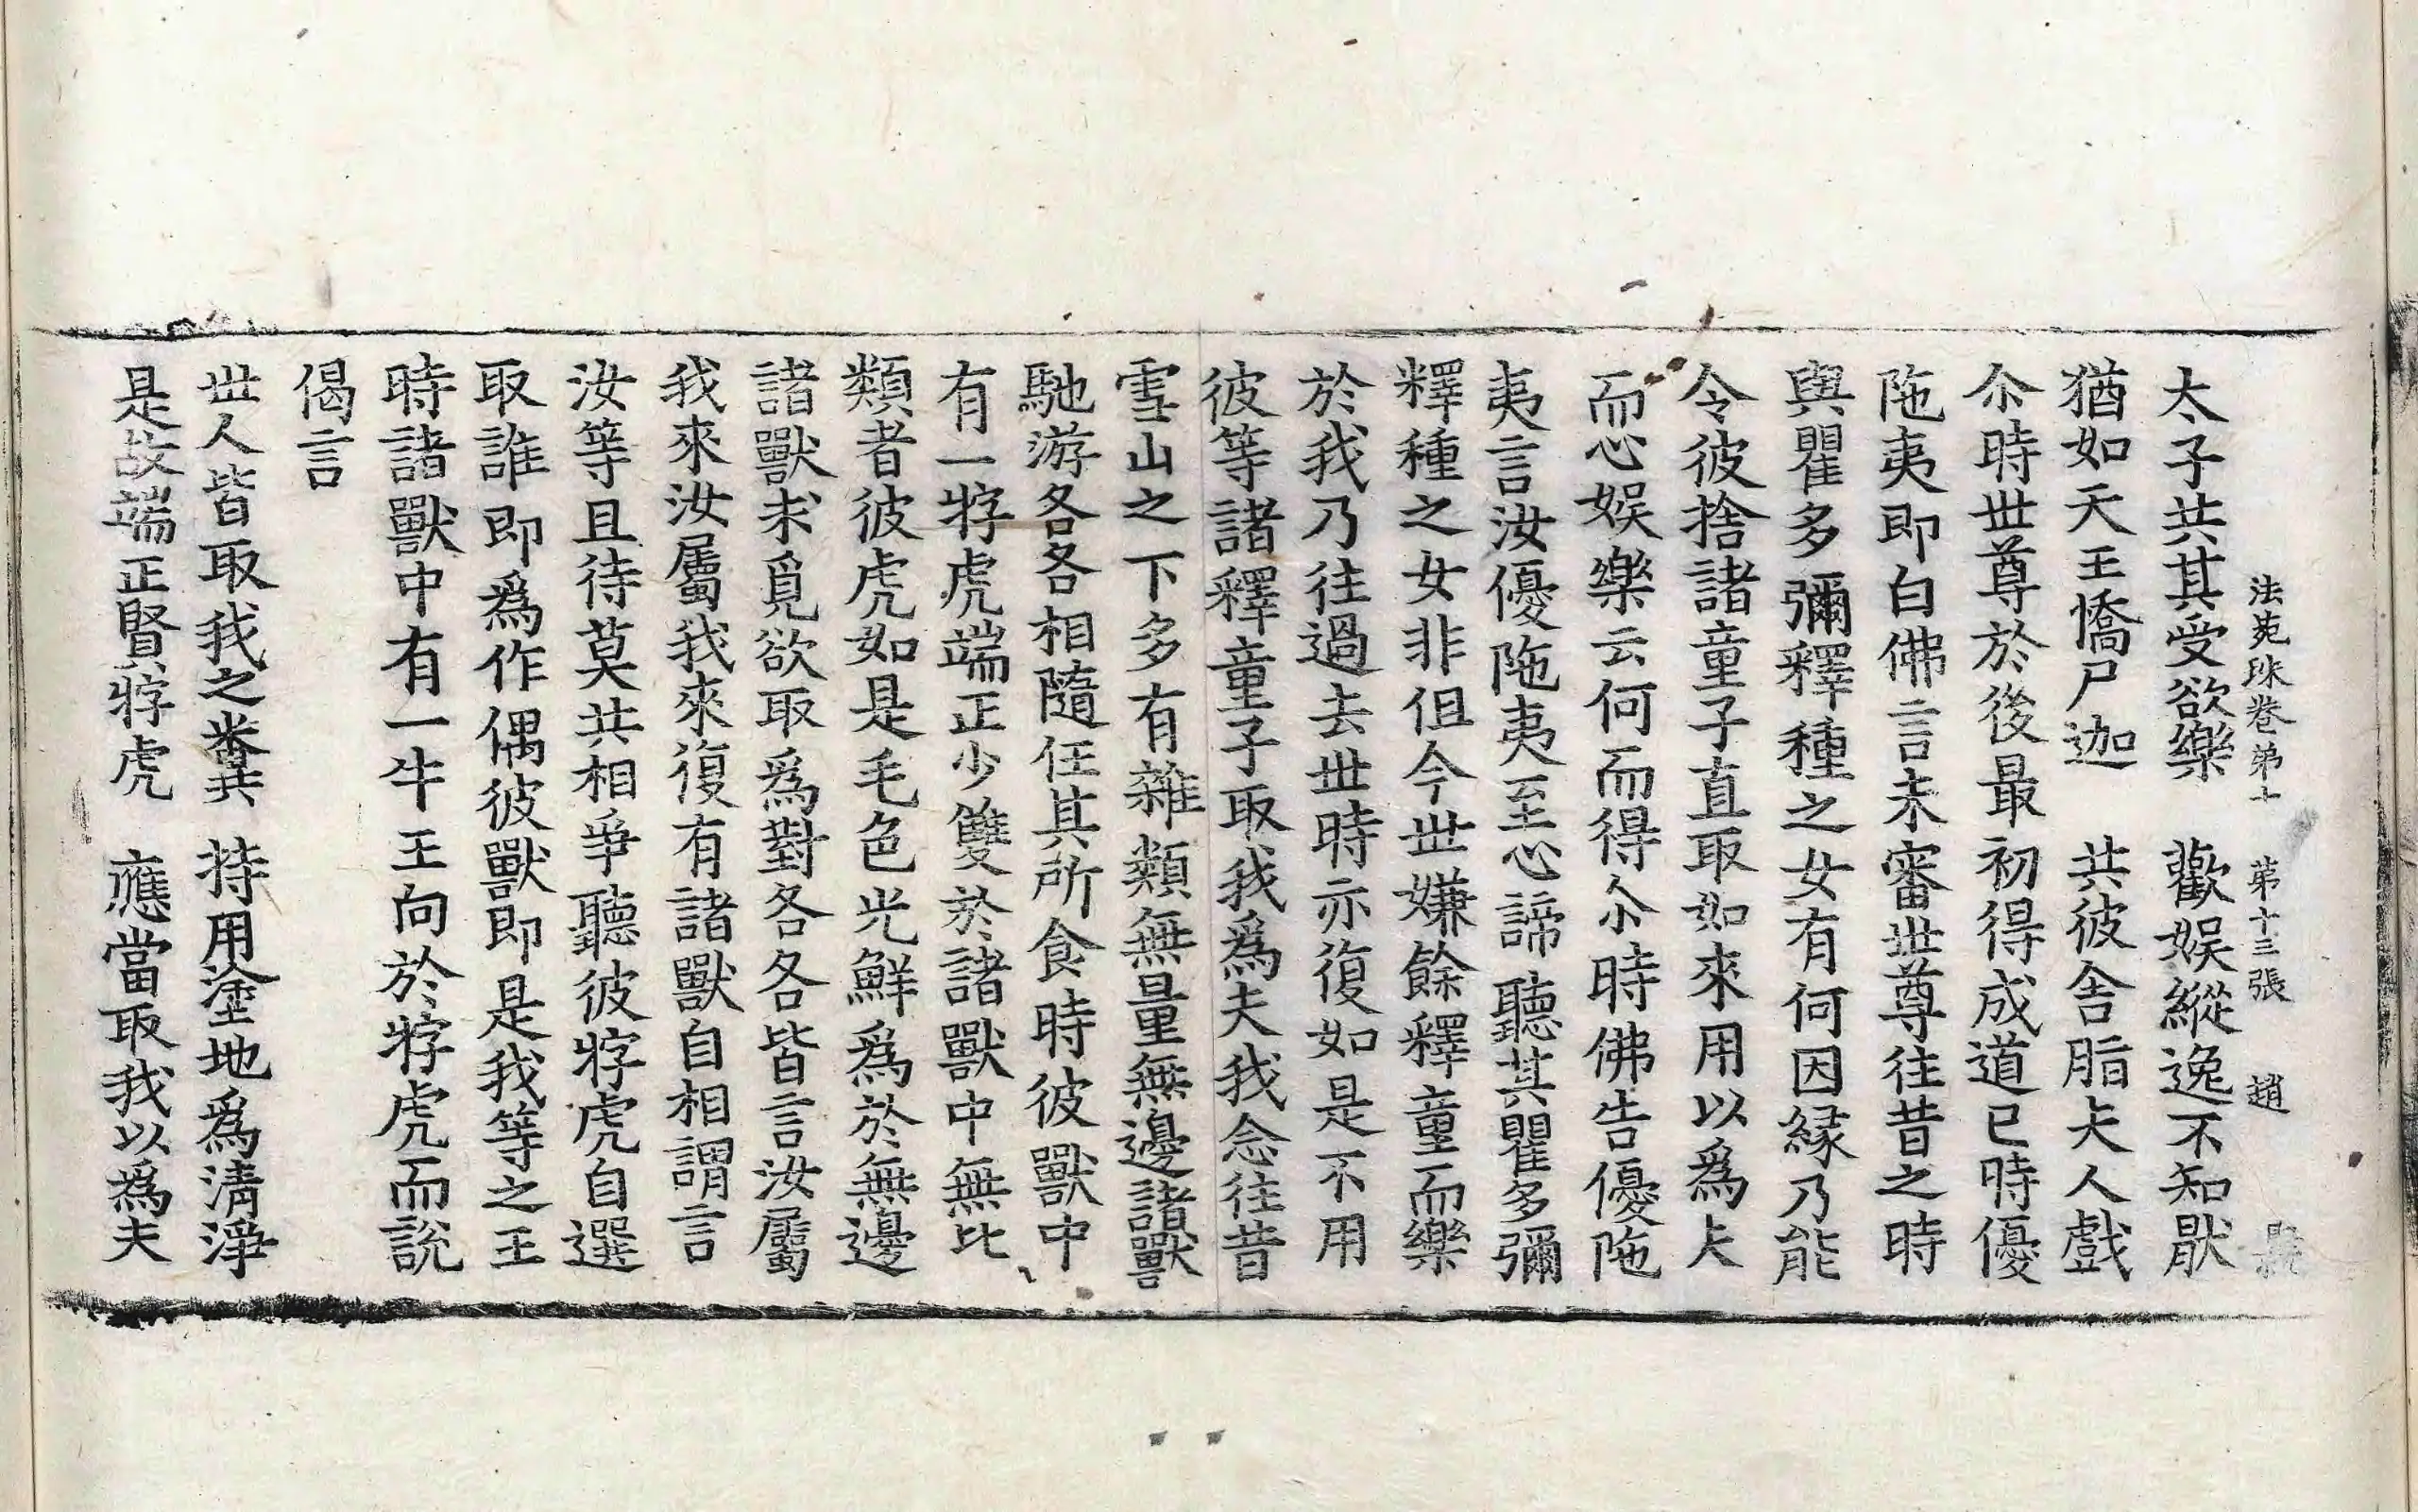 法苑珠卷苐十 苐十三張 趙
太子共其受欲樂 歡娱縱逸不知猒
猶如天王憍尸迦 共彼舍脂夫人戲
尒時世尊於後最初得成道已時優
陁夷即白佛言未審世尊往昔之時
與瞿多彌釋種之女有何因緣乃能
令彼捨諸童子直取如來用以爲夫
而心娱樂云何而得尒時佛告優陁
夷言汝優陁夷至心諦聽其瞿多彌
釋種之女非但今世嫌餘釋童而樂
於我乃往過去世時亦復如是不用
彼等諸釋童子取我爲夫我念往昔
雪山之下多有雜類無量無邊諸獸
馳游各各相隨任其所食時彼獸中
有一牸虎端正少雙於諸獸中無比
類者彼虎如是毛色光鮮爲於無邊
諸獸求覓欲取爲對各各皆言汝屬
我來汝屬我來復有諸獸自相謂言
汝等且待莫共相爭聽彼牸虎自選
取誰即爲作偶彼獸即是我等之王
時諸獸中有一牛王向於牸虎而說
偈言
世人皆取我之糞 持用塗地爲清淨
是故端正賢牸虎 應當取我以爲夫